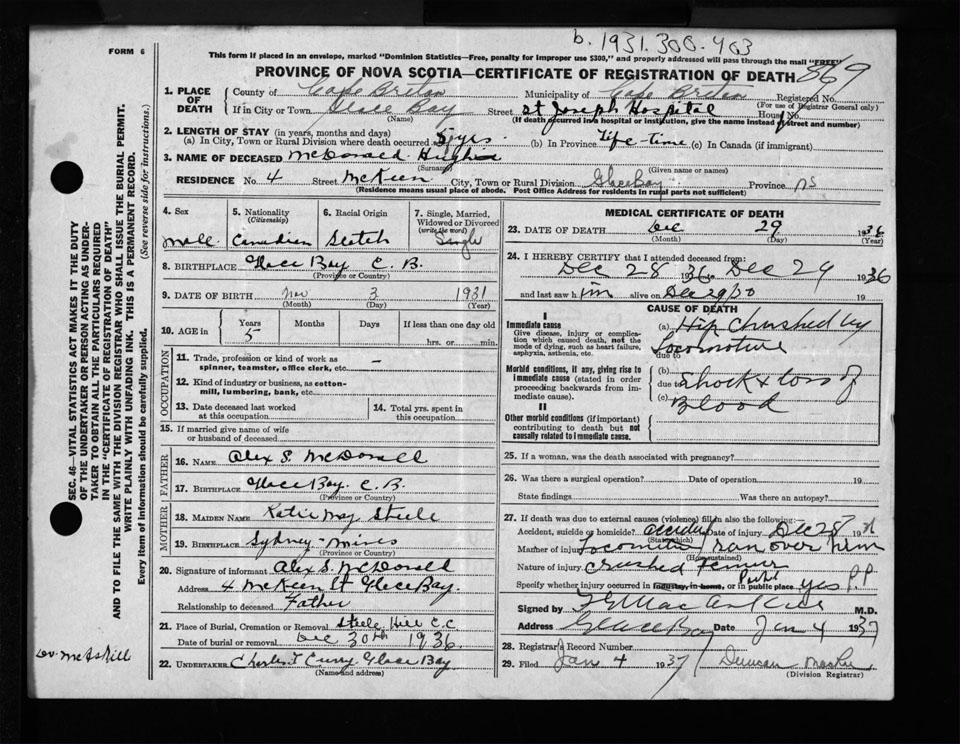 b. 1931.300.403
FORM 6
This form if placed in an envelope, marked "Dominion Statistics—Free, penalty for improper use $300," and properly addressed will pass through the mail "FREE"
PROVINCE OF NOVA SCOTIA—CERTIFICATE OF REGISTRATION OF DEATH 869
1. PLACE OF DEATH
County of Cape Breton Municipality of Cape Breton Registered No.
(For use of Registrar General only)
If in City or Town Glace Bay Street St Joseph Hospital House No.
(Name) (If death occurred in a hospital or institution, give the name instead of street and number)
2. LENGTH OF STAY (in years, months and days)
(a) In City, Town or Rural Division where death occurred 5 yrs. (b) In Province Life-time (c) In Canada (if immigrant)
3. NAME OF DECEASED McDonald Hughie
(Surname) (Given name or names)
RESIDENCE No. 4 Street McKeen City, Town or Rural Division Glace Bay Province NS
(Residence means usual place of abode. Post Office Address for residents in rural parts not sufficient)
4. Sex
Male
5. Nationality
(Citizenship)
Canadian
6. Racial Origin
Scotch
7. Single, Married, Widowed or Divorced
(write the word)
Single
8. BIRTHPLACE Glace Bay C. B.
(Province or Country)
9. DATE OF BIRTH Nov 3 1931
(Month) (Day) (Year)
10. AGE in Years Months Days If less than one day
5 hrs. or min.
OCCUPATION
11. Trade, profession or kind of work as spinner, teamster, office clerk, etc. —
12. Kind of industry or business, as cotton-mill, lumbering, bank, etc.
13. Date deceased last worked at this occupation
14. Total yrs. spent in this occupation
15. If married give name of wife or husband of deceased
FATHER
16. NAME Alex S. McDonald
17. BIRTHPLACE Glace Bay. C. B.
(Province or Country)
MOTHER
18. MAIDEN NAME Katie May Steele
19. BIRTHPLACE Sydney-Mines
(Province or Country)
20. Signature of informant Alex S. McDonald
Address 4 McKeen St Glace Bay.
Relationship to deceased Father
21. Place of Burial, Cremation or Removal Steele Hill C.C
Date of burial or removal Dec 30th 1936
22. UNDERTAKER Charles T Curry Glace Bay
(Name and address)
MEDICAL CERTIFICATE OF DEATH
23. DATE OF DEATH Dec 29 1936
(Month) (Day) (Year)
24. I HEREBY CERTIFY that I attended deceased from:
Dec 28 1936 to Dec 29 1936
and last saw him alive on Dec 29/30 19
CAUSE OF DEATH
I
Immediate cause
Give disease, injury or complication which caused death, not the mode of dying, such as heart failure, asphyxia, asthenia, etc.
(a) Hip Crushed by
Locomotive
due to
Morbid conditions, if any, giving rise to immediate cause (stated in order proceeding backwards from immediate cause).
(b)
due to Shock & loss of
(c) Blood
II
Other morbid conditions (if important) contributing to death but not causally related to immediate cause.
25. If a woman, was the death associated with pregnancy?
26. Was there a surgical operation? Date of operation 19
State findings Was there an autopsy?
27. If death was due to external causes (violence) fill in also the following:
Accident, suicide or homicide? accident Date of injury Dec 28 19
(State which)
Manner of injury Locomotive ran over him
(How sustained)
Nature of injury Crushed Femur
Specify whether injury occurred in industry, in home, or in public place yes P.P.
Signed by M.D.
Address Glace Bay Date Jan 4 1937
28. Registrar's Record Number
29. Filed Jan 4 1937 Duncan
(Division Registrar)
SEC. 46—VITAL STATISTICS ACT MAKES IT THE DUTY
OF THE UNDERTAKER OR PERSON ACTING AS UNDERTAKER
TO OBTAIN ALL THE PARTICULARS REQUIRED
IN THE "CERTIFICATE OF REGISTRATION OF DEATH"
AND TO FILE THE SAME WITH THE DIVISION REGISTRAR WHO SHALL ISSUE THE BURIAL PERMIT.
WRITE PLAINLY WITH UNFADING INK. THIS IS A PERMANENT RECORD.
Every item of information should be carefully supplied. (See reverse side for instructions.)
McAskill